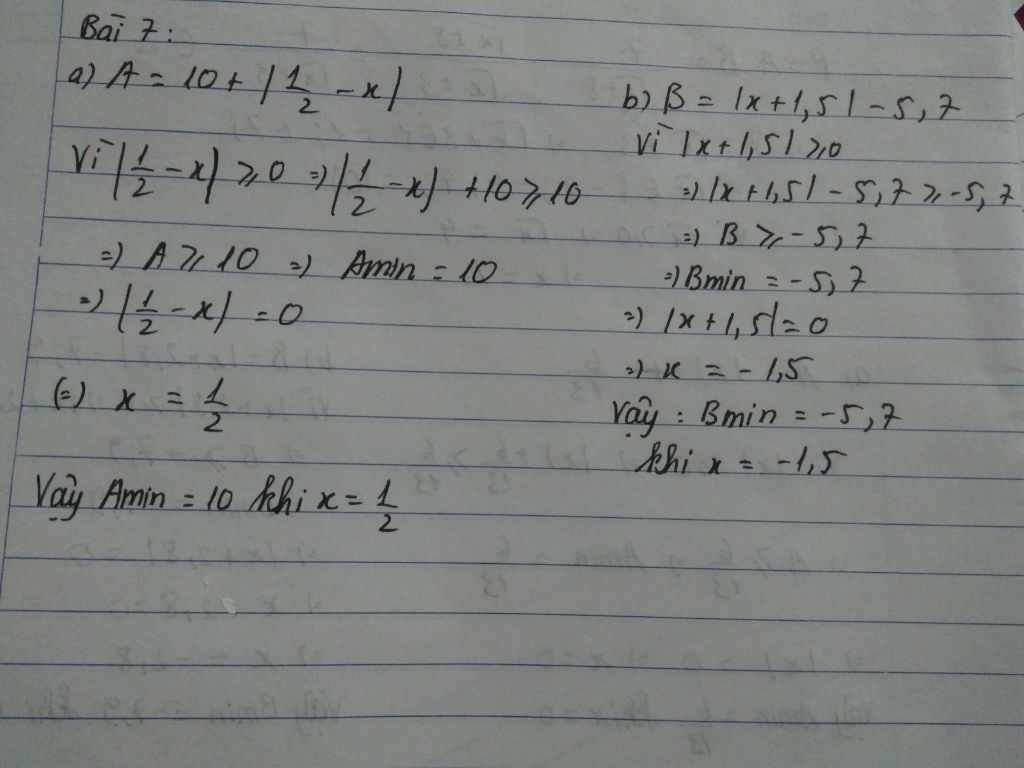 Bài 7:
a) A = 10 + |1/2 - x|
Vì |1/2 - x| ⩾ 0 => |1/2 - x| + 10 ⩾ 10
=> A ⩾ 10 => Amin = 10
=> |1/2 - x| = 0
(=) x = 1/2
Vậy Amin = 10 khi x = 1/2
b) B = |x + 1,5| - 5,7
Vì |x + 1,5| ⩾ 0
=> |x + 1,5| - 5,7 ⩾ -5,7
=> B ⩾ -5,7
=> Bmin = -5,7
=> |x + 1,5| = 0
=> x = -1,5
Vậy : Bmin = -5,7
khi x = -1,5